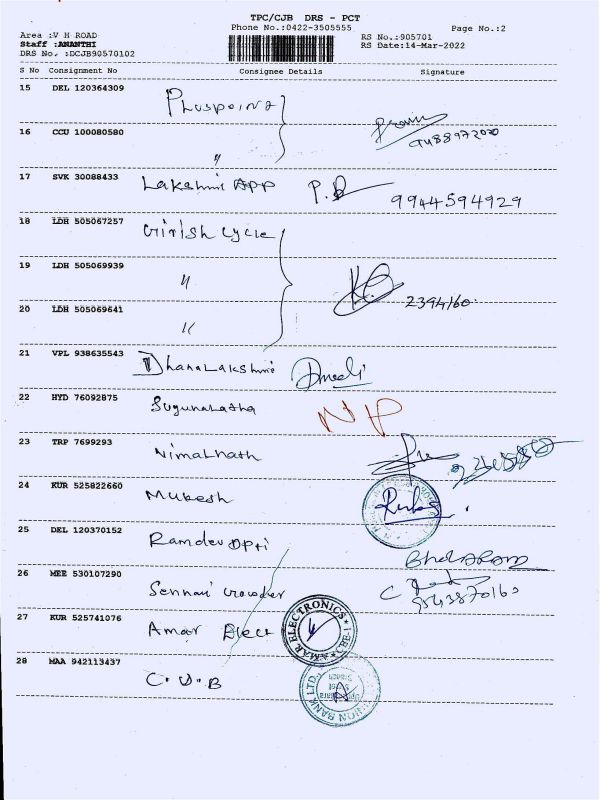 TPC/CJB DRS - PCT
Phone No.:0422-3505555
Page No.:2
Area :V H ROAD
RS No.:905701
Staff :ANANTHI
RS Date:14-Mar-2022
DRS No. :DCJB90570102
S No Consignment No Consignee Details Signature
15 DEL 120364309 Pluspoint
16 CCU 100080580 "
9488972020
17 SVK 30088433 Lakshmi APP P.R 9944594929
18 LDH 505067257 Girish Cycle
19 LDH 505069939 "
2394160
20 LDH 505069641 "
21 VPL 938635543 Dhanalakshmi
22 HYD 76092875 Sugunalatha NP
23 TRP 7699293 Nimalnath
24 KUR 525822660 Mukesh
25 DEL 120370152 Ramdev Dpti
26 MEE 530107290 Sennai Gounder
9543870160
27 KUR 525741076 Amar Elect
AMAR ELECTRONICS
28 MAA 942113437 C.U.B
UNION BANK LTD